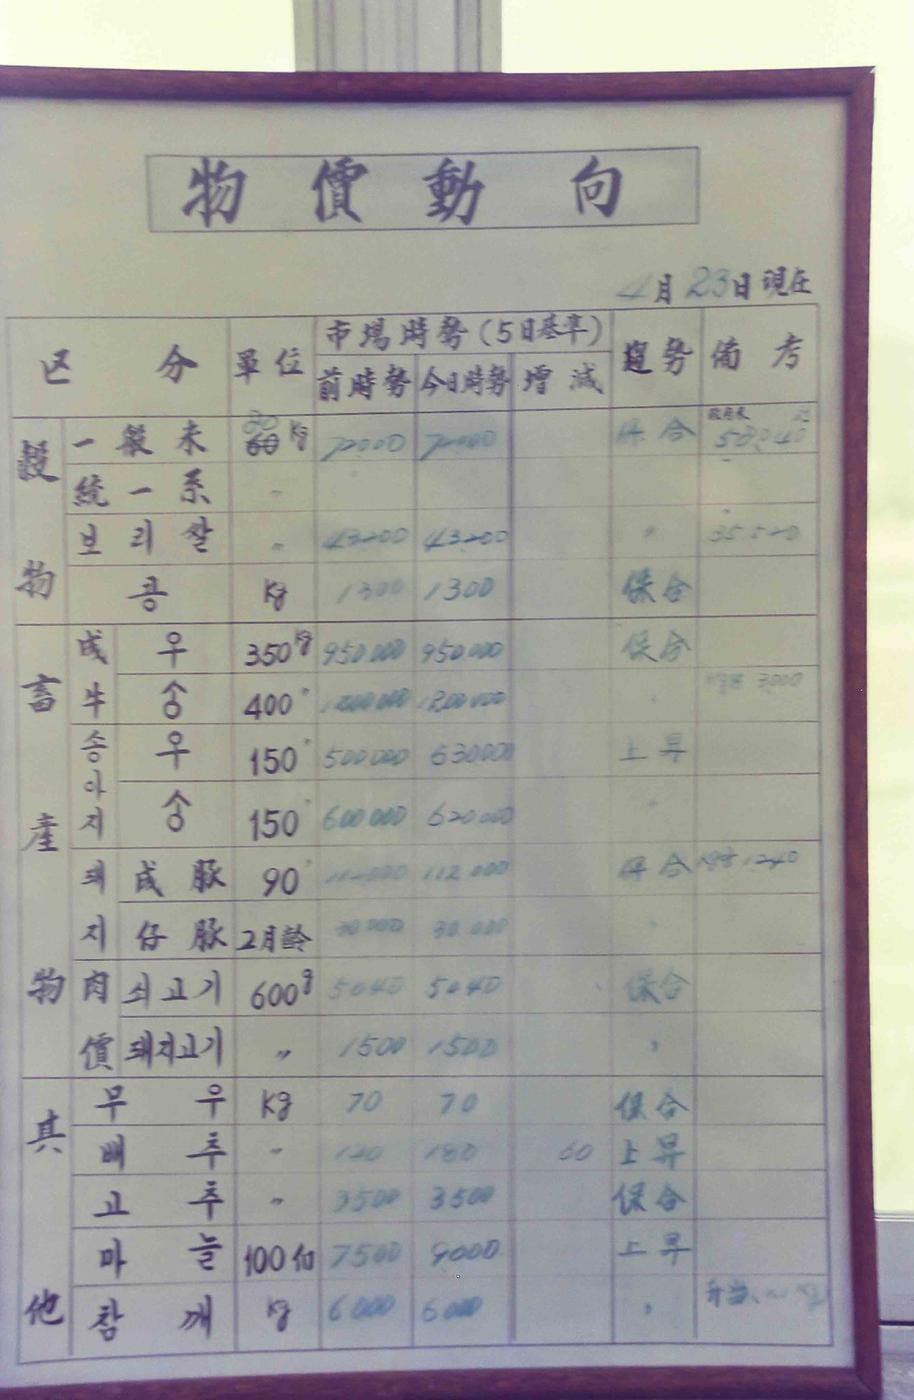 物價動向
4月23日現在
区分 單位 市場時勢(5日基準) 趨勢 備考
前時勢 今日時勢 增減
穀物 一般米 80 60 kg 72000 72000 保合
統一系 〃
보리쌀 〃 43200 43200 〃 35520
콩 kg 1300 1300 保合
畜產物 成牛 우 350kg 950000 950000 保合
송 400〃 1200000 1200000 〃 3000
송아지 우 150〃 500000 630000 上昇
송 150〃 600000 620000 〃
돼지 成豚 90〃 112000 112000 保合 1240
仔豚 2月齡 30000 30000 〃
肉價 쇠고기 600g 5040 5040 保合
돼지고기 〃 1500 1500 〃
其他 무우 kg 70 70 保合
배추 〃 120 180 60 上昇
고추 〃 3500 3500 保合
마늘 100 7500 9000 上昇
참깨 kg 6000 6000 〃